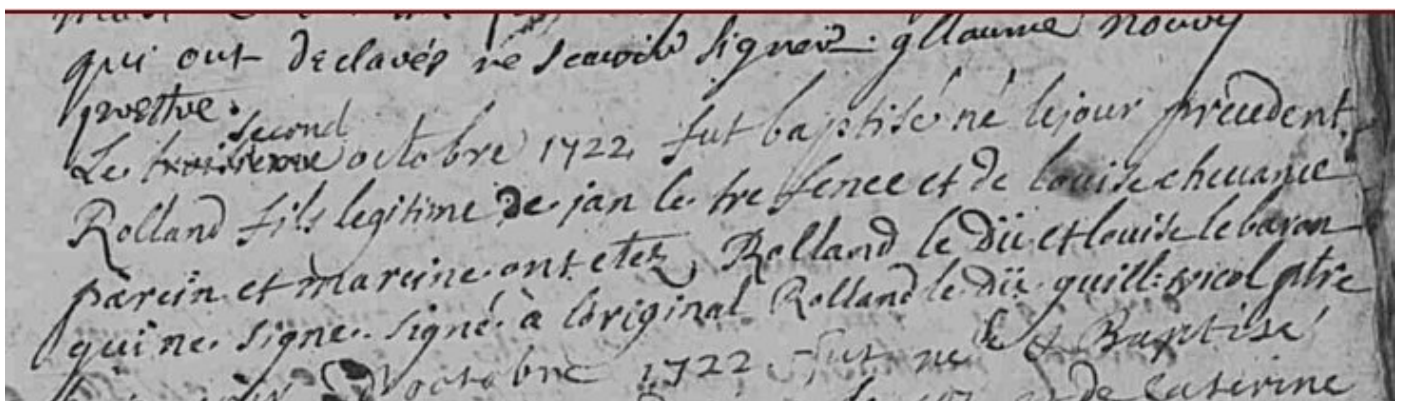 qui ont declarés ne scavoir signer. gllaume nouvy
prestre.
second
Le troisieme octobre 1722 fut baptisé né lejour precedent
Rolland fils legitime de jan le tre fence et de louise chevance
parein et mareine ont etez, Rolland le Dü et louise lebaron
qui ne signe. signé à l'original Rolland le dü guill: nicol ptre
octobre 1722 fut né et Baptisé
de Caterine